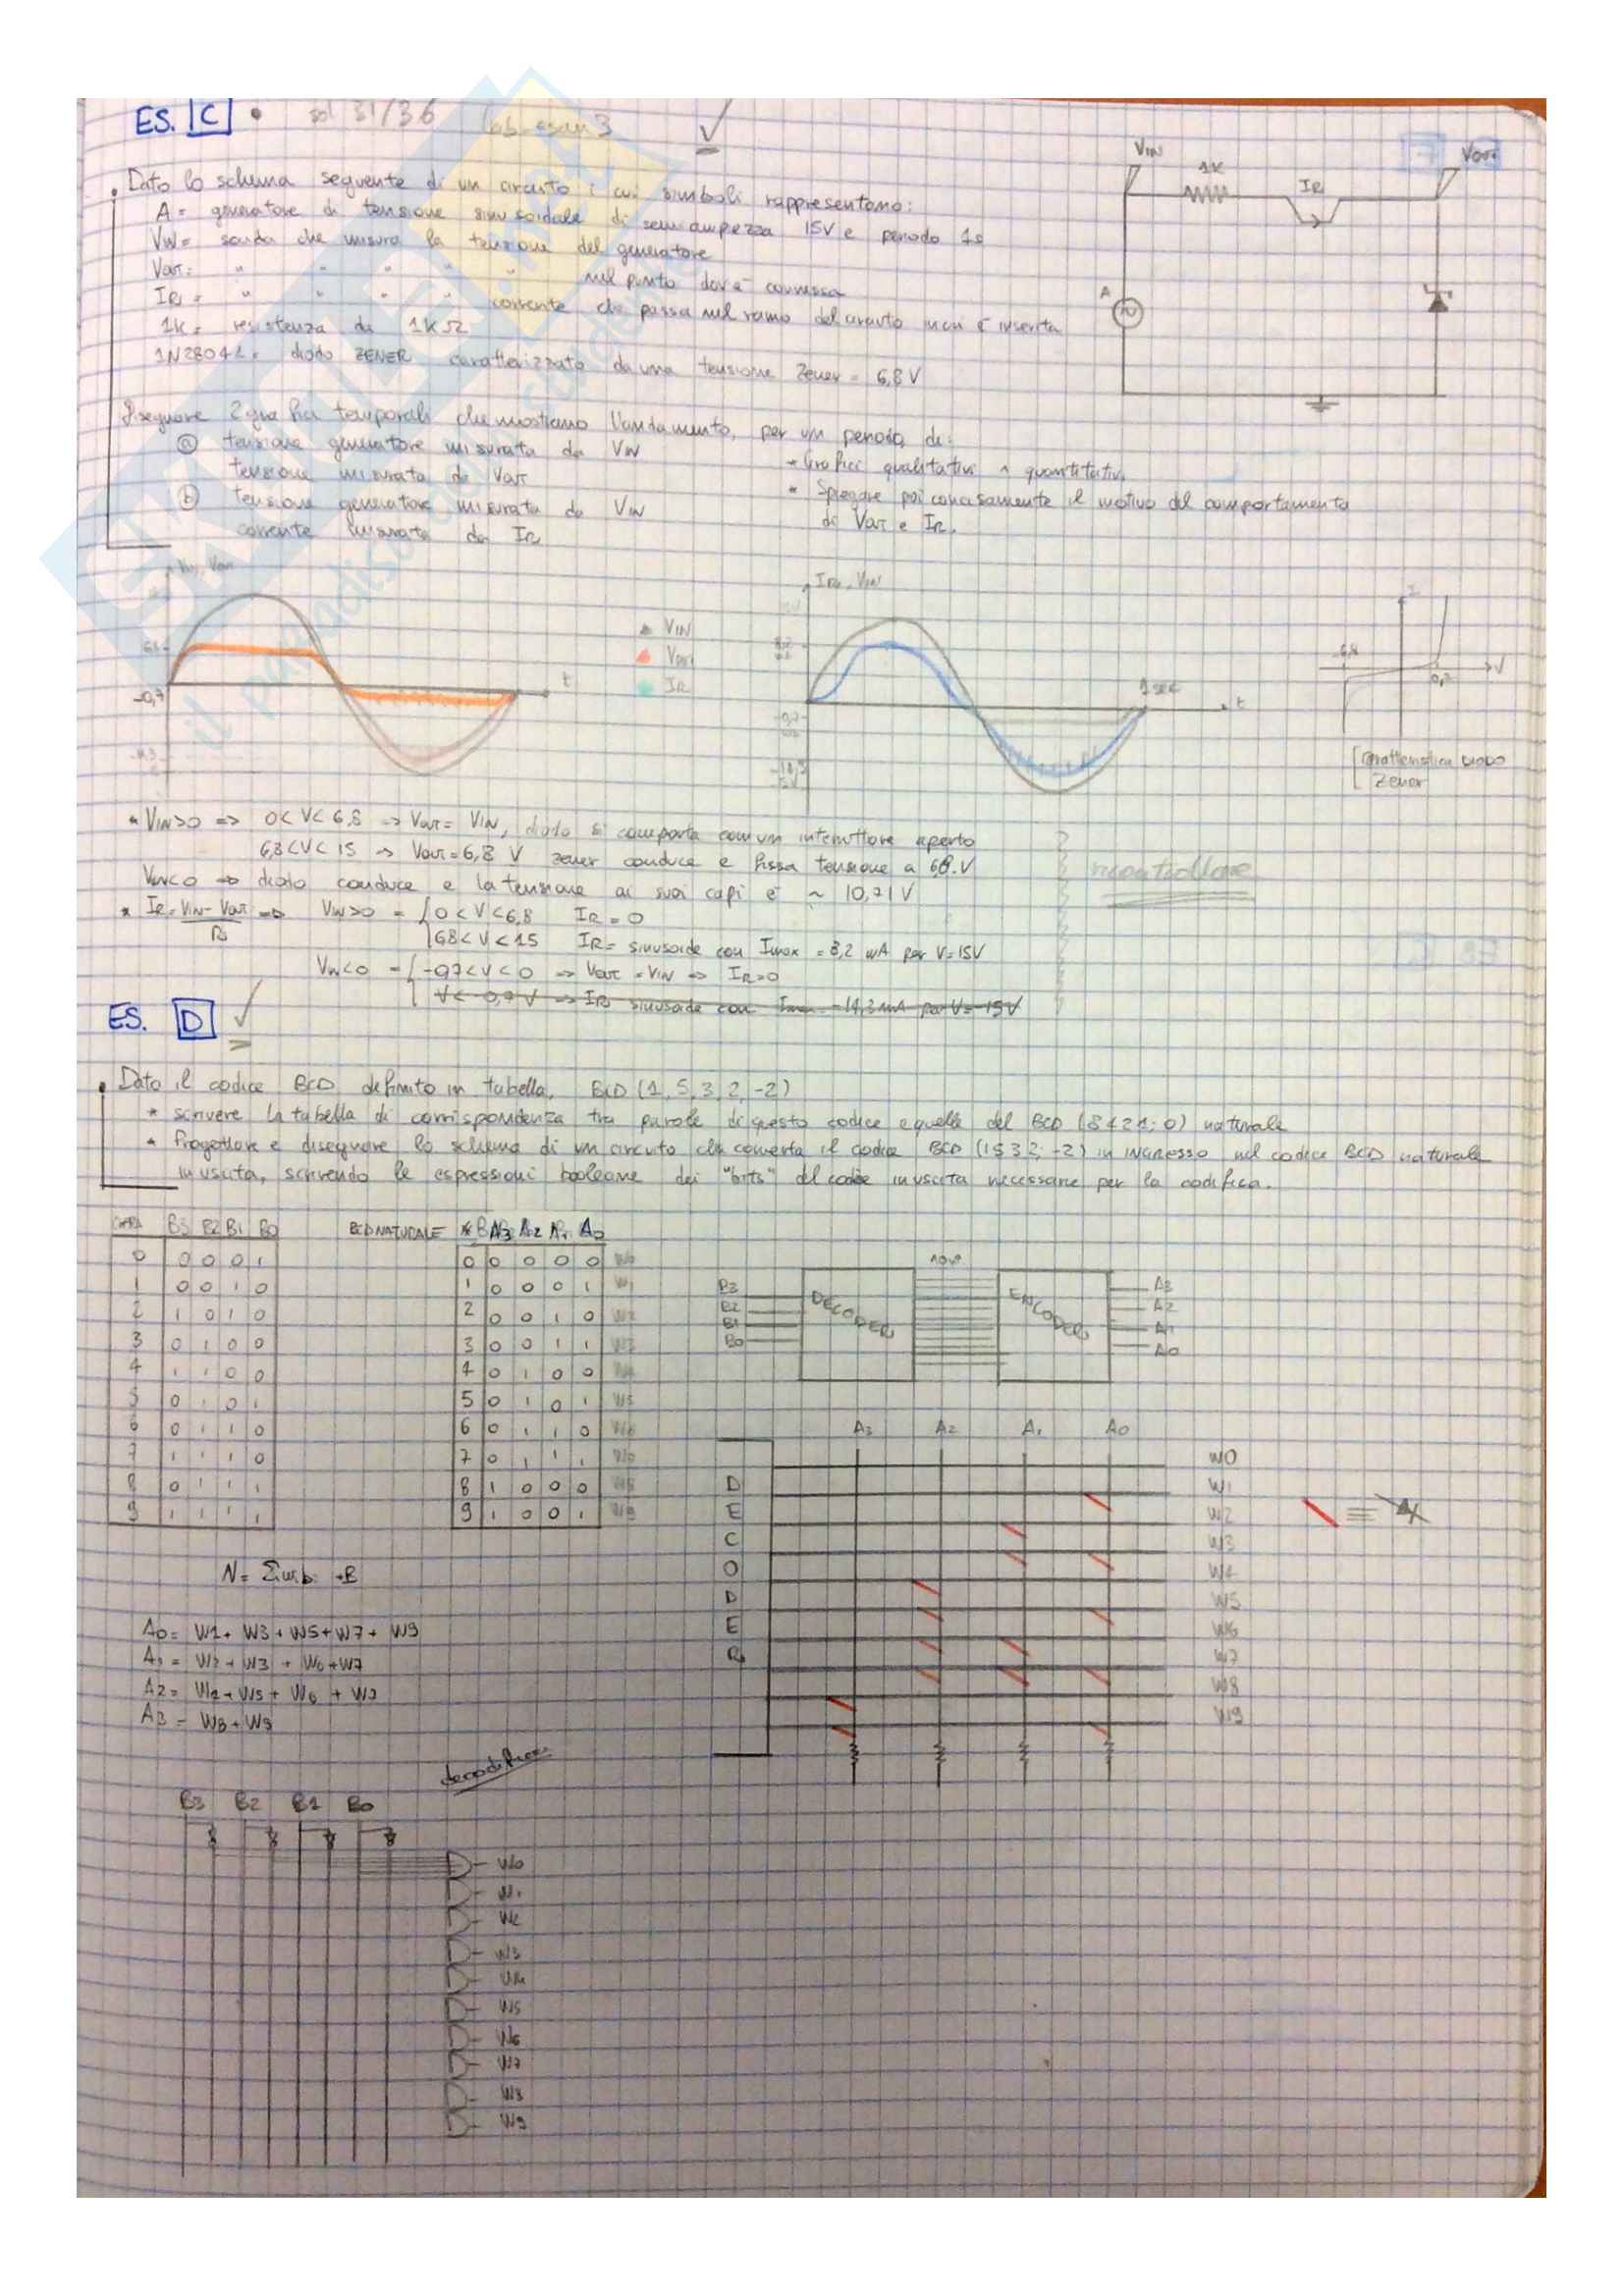 ES. C
Dato lo schema seguente di un circuito i cui simboli rappresentano:
A = generatore di tensione sinusoidale di semiampezza 15V e periodo 1s
VIN = sonda che misura la tensione del generatore
VOUT = " " " " " nel punto dov'è connessa
IR = " " " " corrente che passa nel ramo del circuito in cui è inserita
1K = resistenza da 1KΩ
1N2804L = diodo ZENER caratterizzato da una tensione Zener = 6,8 V
VIN
1K
IR
VOUT
A
Disegnare 2 grafici temporali che mostiano l'andamento, per un periodo, di:
a tensione generatore misurata da VIN
tensione misurata da VOUT
b tensione generatore misurata da VIN
corrente misurata da IR
* Grafici qualitativi e quantitativi
* Spiegare poi concisamente il motivo del comportamento
di VOUT e IR.
t
-0,7
VIN
VOUT
IR
IR, VIN
8,2
1 sec
t
I
-6,8
V
0,7
Caratteristica DIODO
Zener
* VIN>0 => 0<V<6,8 -> VOUT = VIN, diodo si comporta com un interruttore aperto
6,8<V<15 -> VOUT=6,8 V zener conduce e fissa tensione a 6,8 V
VIN<0 => diodo conduce e la tensione ai suoi capi è ~ 10,71 V
ricontrollare
* IR = VIN - VOUT / R => VIN>0 = { 0<V<6,8 IR = 0
6,8<V<15 IR = sinusoide con Imax = 8,2 mA per V=15V
VIN<0 = { -0,7<V<0 => VOUT = VIN => IR=0
V<-0,7V => IR sinusoide con Imax = -14,3 mA per V=-15V
ES. D
Dato il codice BCD definito in tabella, BCD (1, 5, 3, 2, -2)
* scrivere la tabella di corrispondenza tra parole di questo codice e quelle del BCD (8421; 0) naturale
* Progettare e disegnare lo schema di un circuito che converta il codice BCD (1532; -2) in INGRESSO nel codice BCD naturale
in uscita, scrivendo le espressioni booleane dei "bits" del codice in uscita necessarie per la codifica.
CIFRA B3 B2 B1 B0
0 0 0 0 1
1 0 0 1 0
2 1 0 1 0
3 0 1 0 0
4 1 1 0 0
5 0 1 0 1
6 0 1 1 0
7 1 1 1 0
8 0 1 1 1
9 1 1 1 1
BCD NATURALE A3 A2 A1 A0
0 0 0 0 0 W0
1 0 0 0 1 W1
2 0 0 1 0 W2
3 0 0 1 1 W3
4 0 1 0 0 W4
5 0 1 0 1 W5
6 0 1 1 0 W6
7 0 1 1 1
8 1 0 0 0 W8
9 1 0 0 1 W9
B3
B2
B1
B0
DECODER
ENCODER
A3
A2
A1
A0
A3 A2 A1 A0
DECODER
W0
W1
W2
W3
W4
W5
W6
W7
W8
W9
A0 = W1 + W3 + W5 + W7 + W9
A1 = W2 + W3 + W6 + W7
A2 = W4 + W5 + W6 + W7
A3 = W8 + W9
B3 B2 B1 B0
W0
W1
W2
W3
W4
W5
W6
W7
W8
W9